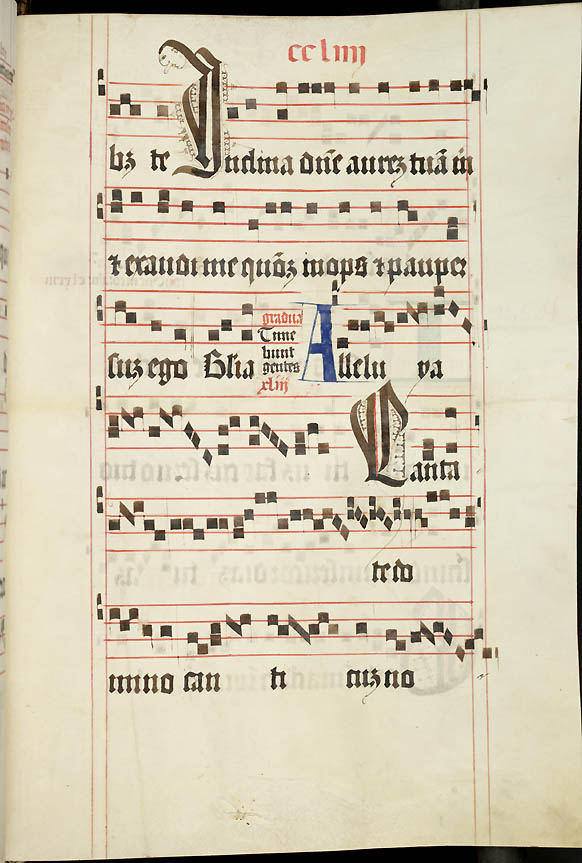 ccliiij
bꝫ te Inclina dn̄e aureꝫ tuā in
⁊ exaudi me quōꝫ inops ⁊ pauper
suꝫ ego Gl̄ia
gradua
Time
bunt
gentes
xliij
Allelu ya
Canta
te do
mino can ti cuꝫ no